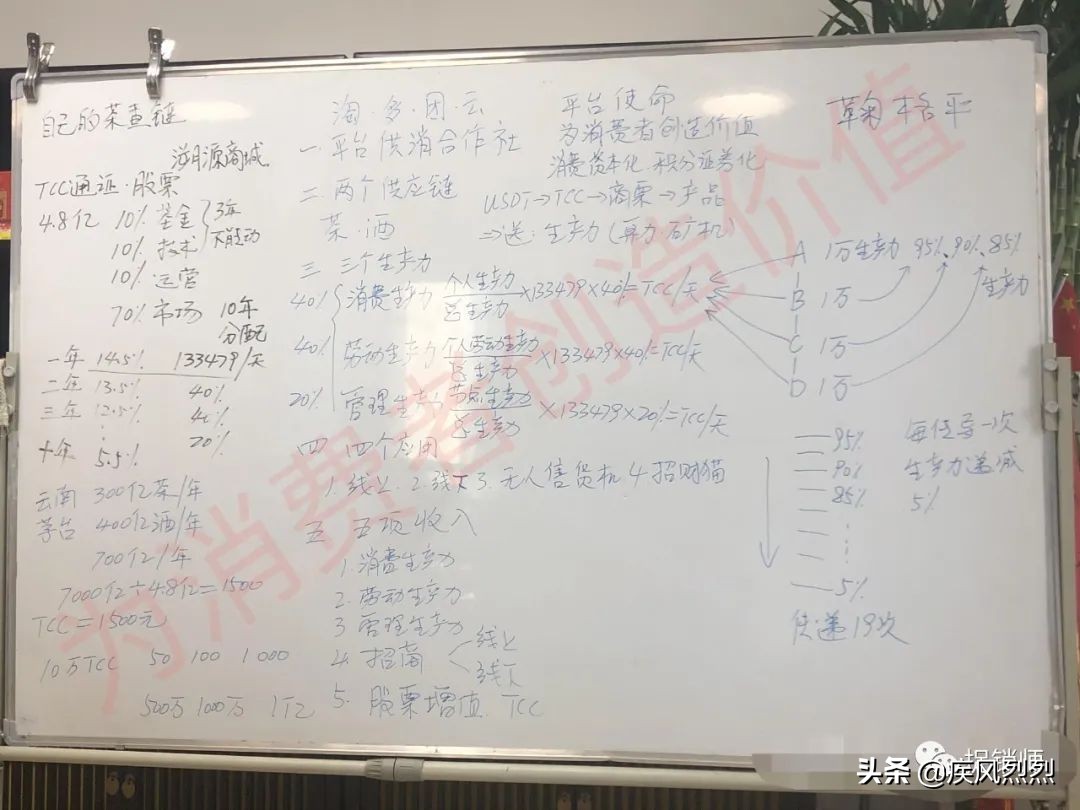 自己的茶查链
溯源商城
TCC通证·股票
4.8亿 10% 基金
10% 技术
3年
不能动
10% 运营
70% 市场 10年
分配
一年 14.5% 133479/天
二年 13.5% 40%
三年 12.5% 40%
20%
十年 5.5%
云南 300亿茶/年
茅台 400亿酒/年
700亿/年
7000亿÷4.8亿=1500
TCC=1500元
10万TCC 50 100 1000
500万 1000万 1亿
淘·多·团·云
一 平台 供消合作社
二 两个供应链
茶·酒
三 三个生产力
40% 消费生产力 个人生产力/总生产力 ×133479×40%=TCC/天
40% 劳动生产力 个人劳动生产力/总生产力 ×133479×40%=TCC/天
20% 管理生产力 节点生产力/总生产力 ×133479×20%=TCC/天
四 四个应用
1.线上 2.线下 3.无人售货机 4招财猫
五 五项收入
1.消费生产力
2.劳动生产力
3 管理生产力
4.招商 线上
线下
5.股票增值 TCC
平台使命
为消费者创造价值
消费资本化 积分证券化
USDT→TCC→商票→产品
⇒送:生产力(算力·矿机)
草菊格平
A 1万生产力 95%、90%、85%
生产力
B 1万
C 1万
D 1万
95% 每传导一次
90% 生产力递减
85% 5%
5%
传递19次
为消费者创造价值
捉销师
头条 @疾风烈烈